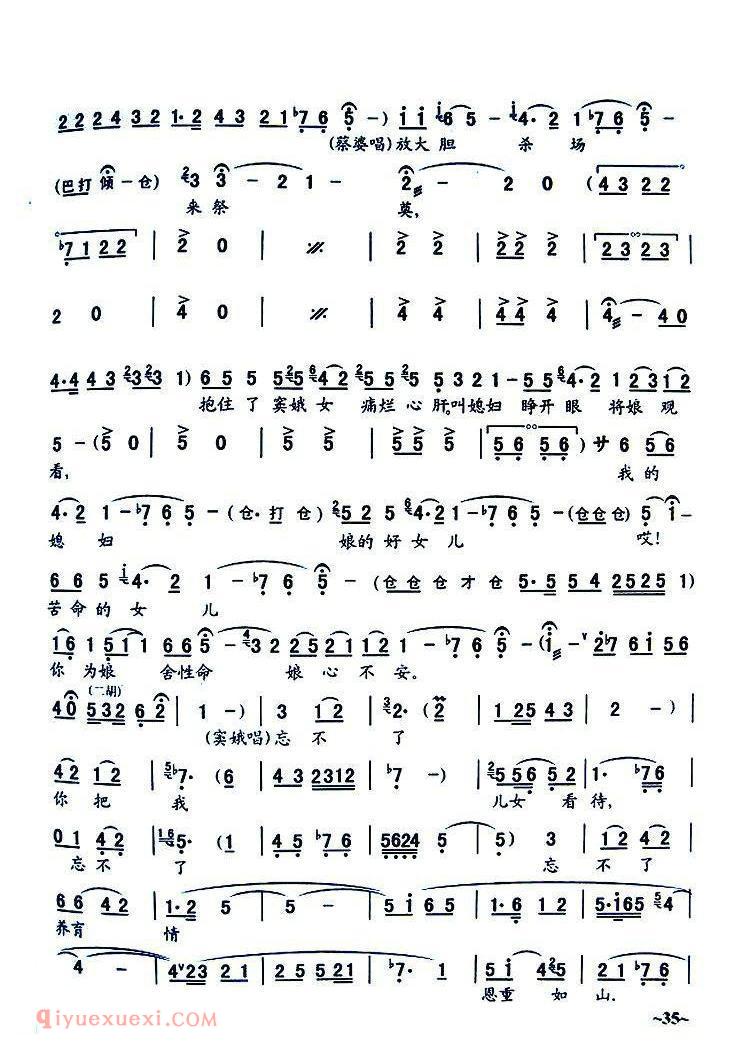 2 2 2 4 3 2 1· 2 4 3 2 1 ♭7 6 5 －) i i 6 5 － 4· 2 1 ♭7 6 5 －
(蔡婆唱)放大胆 杀场
(巴打 倾－仓) 3 3 － 2 1 － 2 － 2 0 (4 3 2 2
来祭 奠,
♭7 1 2 2 | 2 0 | | 2 2 | 2 2 | 2 3 2 3 |
2 0 | 4 0 | | 4 4 | 4 4 | 4 － 4 0
4·4 4 3 1) 6 5 5 5 2 4 2 5 2 5 5 3 2 1 － 5 5 4· 2 1 2 3 1 2
抱住了窦娥女 痛烂心肝,叫媳妇 睁开眼 将娘观
5 － (5 0 | 5 0 | 5 5 | 5 5 | 5 6 5 6 ) サ 6 5 6
看, 我的
4· 2 1 － ♭7 6 5 － (仓· 打 仓) 5 2 5 4· 2 1 － ♭7 6 5 － (仓仓仓) 5 i －
媳妇 娘的好女儿 哎!
6 6 5 4· 2 1 － ♭7 6 5 － (仓 仓 仓 才 仓 5· 5 5 4 2 5 2 5 1)
苦命的女 儿
1 6 1 5 1 1 6 6 5 － 3 2 2 5 2 1 1 2 1 － ♭7 6 5 － (i － 2 ♭7 6 i 5 6
你为娘 舍性命 娘心不安。
(二胡)
4 0 5 3 2 6 2 | 1 －) | 3 1 2 | 2· (2 | 1 2 5 4 3 | 2 －) |
(窦娥唱)忘不 了
4 2 1 2 | ♭7· (6 | 4 3 2 3 1 2 | ♭7 －) | 5 5 6 5 2 | 1· ♭7 6 |
你把 我 儿女 看待,
0 1 4 2 | 5· (1 | 4 5 ♭7 6 | 5 6 2 4 5 | 5) 3 | 1 2 4 2 |
忘不 了 忘 不了
6 6 4 2 | 1· 2 5 | 5 － | 5 i 6 5 | 1· 6 1 2 | 5·i 6 5 4 |
养育 情
4 － | 4 2 3 2 1 | 2 5 2 5 2 1 | ♭7· 1 | 5 i 4 5 | 2 1 ♭7 6 |
恩重 如山.
~35~
qiyuexuexi.com